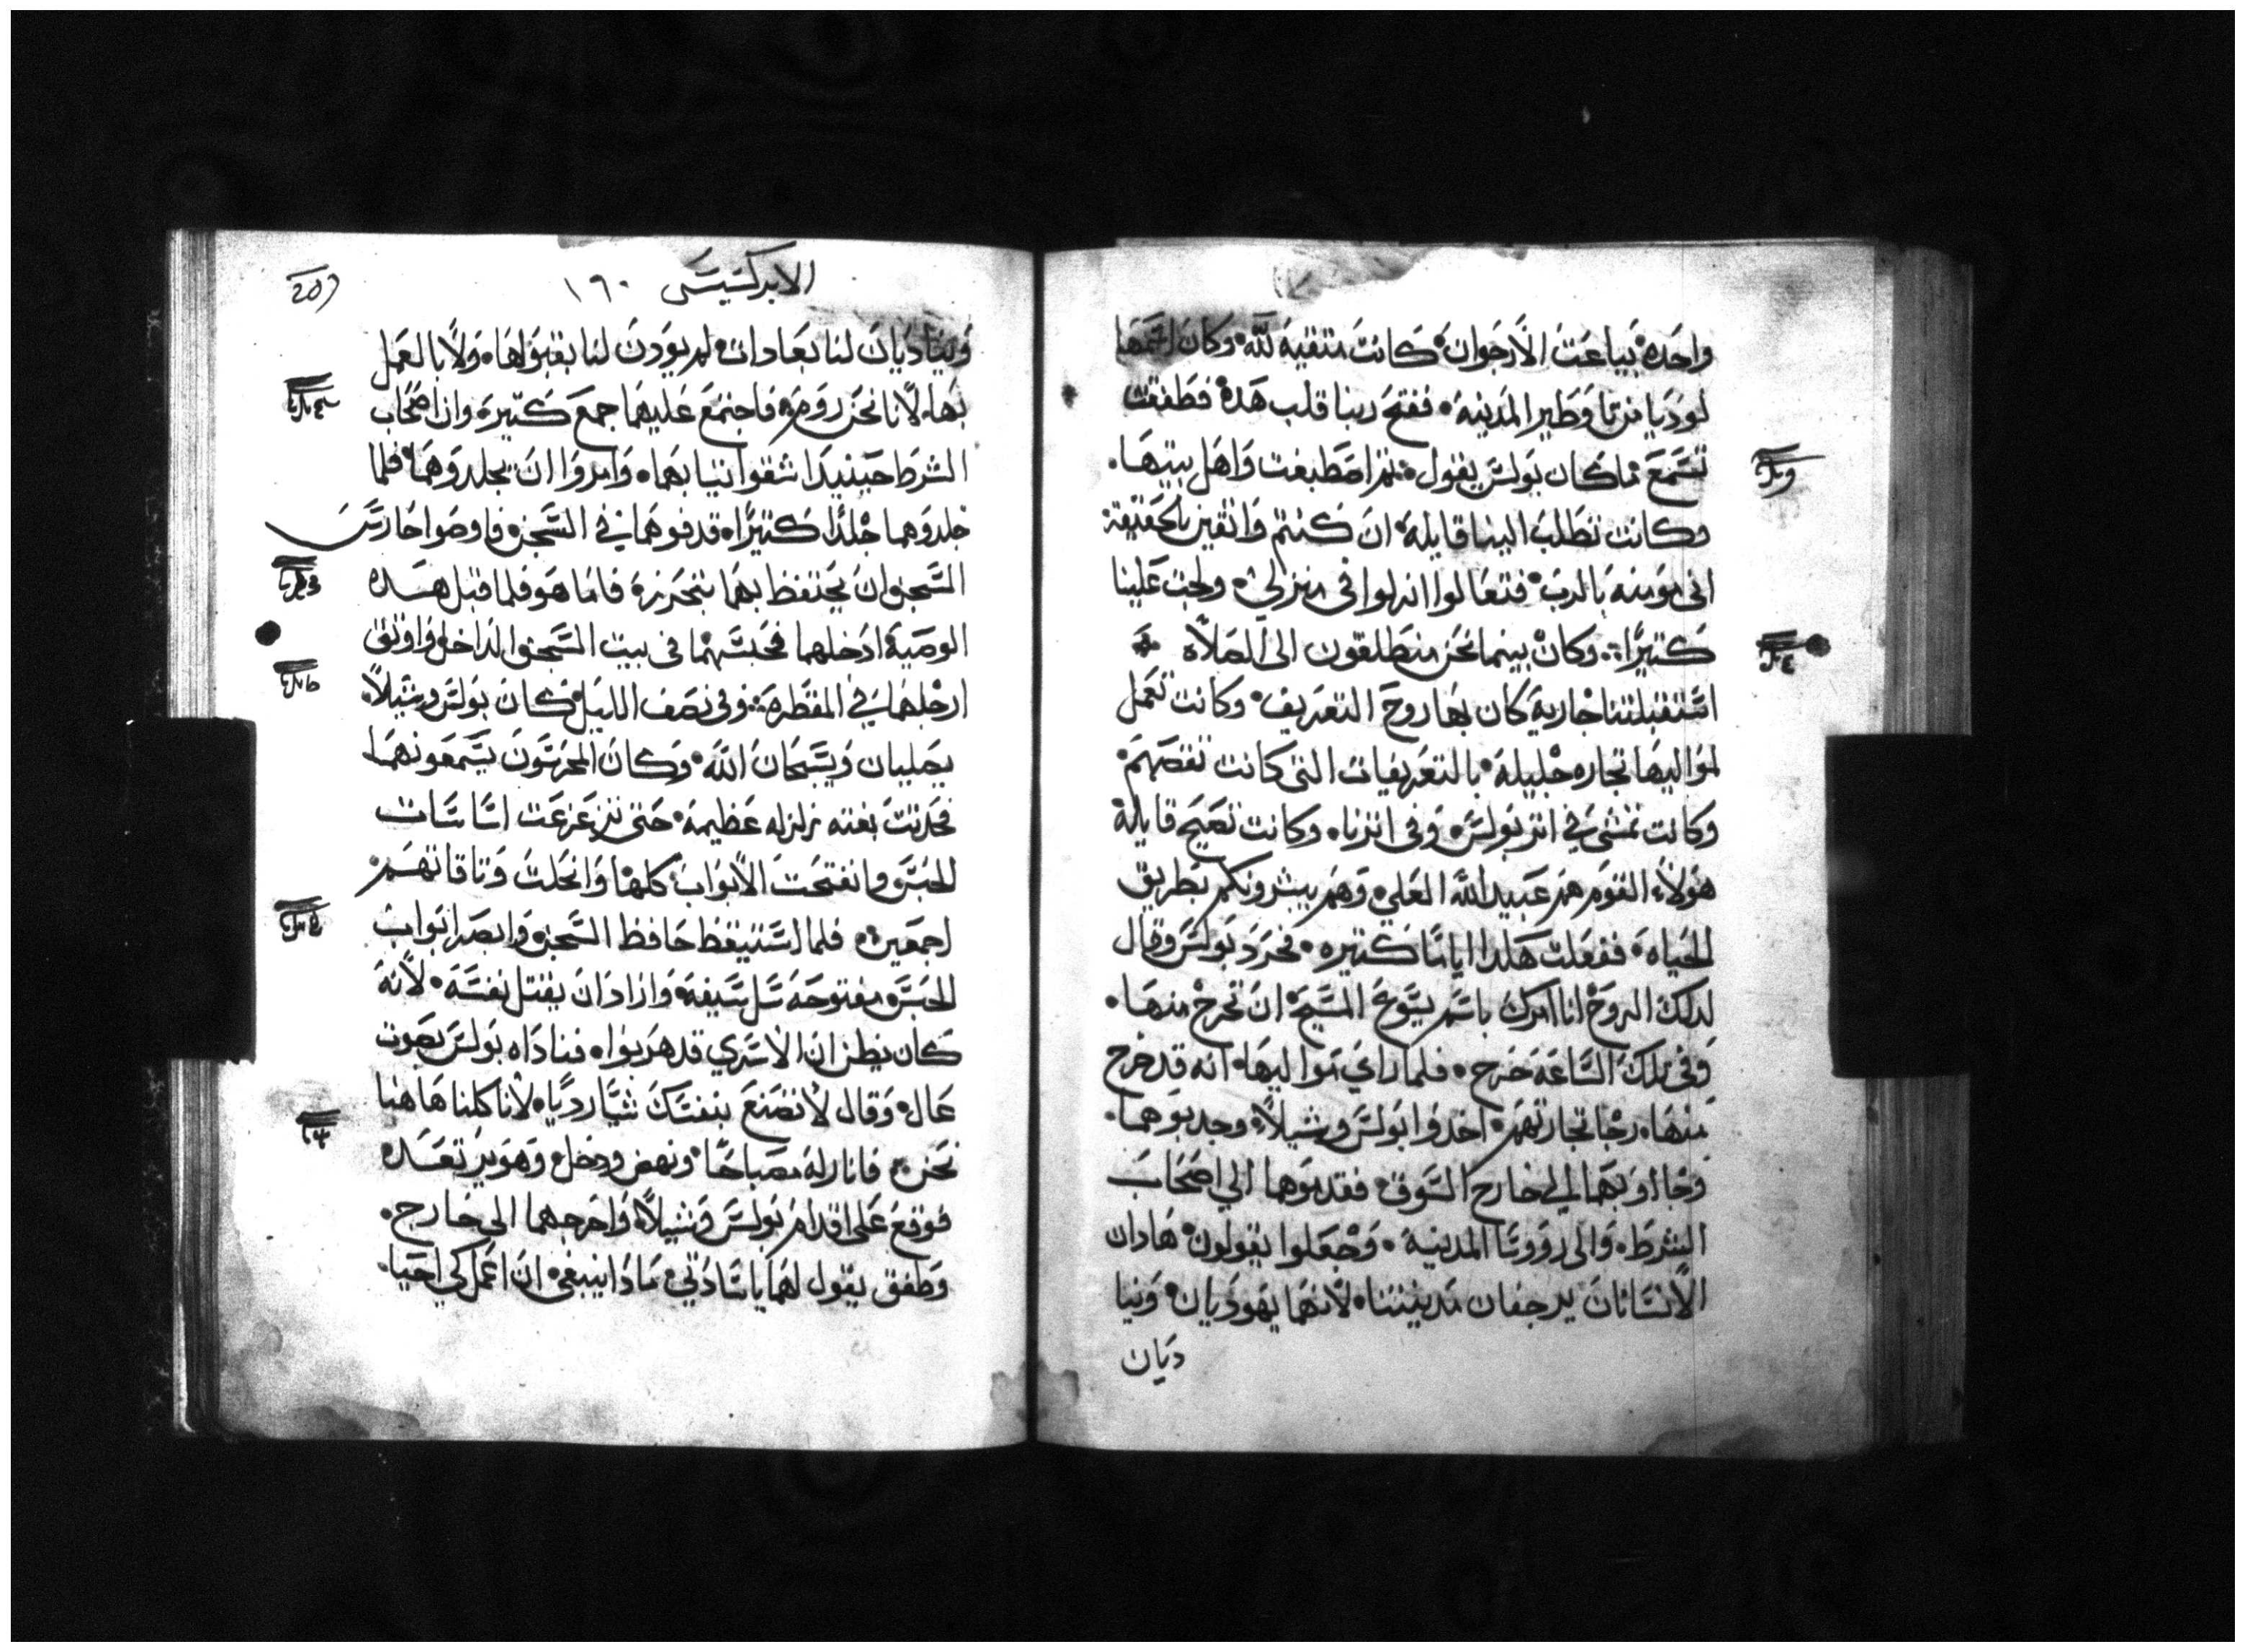 واحَده بَياعَت الاَرجَوان كانت متقيه لله وكان اسَمهَا
لوديا من تاوَطير المدينه ففتحَ ربنا قلب هَده فطفقت
تسَمعَ ما كان بَولسَ يقول ثم اصَطبغت وَاهل بيتهَا
وكانت تطَلبَ الينا قايله ان كنتم وَاثقين بالحَقيقة
اني مَومنه بَالرب فتعَالوا انزلوا في منزلي ولجت عَلينا
كتيرًا وكان بينما نحَن منطلقون الى الصَلاه
اسَتقبلتنا جاريه كان بهَا روحَ التعَريف وكانت تعَمل
لمَواليهَا تجاره جليله بالتعَريفات التي كانت تقصَهم
وكانت تمشي في اتر بَولسَ وَفي اترنا وكانت تصَيح قايلة
هَولاء القوَم هم عَبيد الله العَلي وَهَم يبشرونكم بَطريق
الحَياه ففعَلت هَكدا ايامًا كتيره فحَردَ بَولسَ وقال
لدلكَ الروَح انا امرك باسَم يسَوعَ المسَيح انَ تخرج منهَا
وَفي تلكَ السَاعَة خرَج فلما راي مَواليهَا انه قد خرج
منهَا رجا تجارتهَم اخدوا بَولسَ وشيلاً وجدبَوهما
وَجااو بهَما الي خارج السَوق فقدمَوهما الي اصَحَابَ
الشرطَ وَالى رووسَا المدينة وَجعَلوا يقولون هَادان
الانسَانان يرجفان مَدينتنا لانهَما يهَوديان وَينا
ديَان
الابركسَيسَ ١٦٠
207
وَيناديَان لنا بعَادات لم يودن لنا بقبَولهَا وَلا بالعَمل
بهَا لانا نحَن روَم فاجتمع عَليهمَا جمعَ كتيره وان اصَحَاب
الشرطَ حَينيدا شقوا تيابهَما وَامروَا انَ يجلدوَهمَا فلما
جلدوَهما جلدًا كتيرًا قدفوهمَا في السَجن فاوصَوا حَارسَ
السَجن ان يحَتفظ بهمَا بتحَرز فاما هَو فلما قبل هَده
الوصَية ادخلهما فحَبسَهمَا في بيت السَجن الداخل وَاوتق
ارجلهمَا في المقطرة وفي نصَف الليل كان بَولسَ وشيلاً
يصَليان وَيسَبحَان الله وَكان المحَبَوسَون يسَمعَونهمَا
فحَدتت بَغته زلزله عَظيمه حَتى تزعَزعَت اسَاسَات
الحَبسَ وانفتحَت الابَواب كلهَا وَانحَلت وَتاقاتهَم
اجمعَين فلما استيقظ حَافظ السَجن وَابصَر ابَواب
الحَبسَ مفتوحَه سَل سَيفه وَارادَ انَ يقتل نفسَه لانه
كان يظن ان الاسَري قد هَربَوا فناداه بَولسَ بصَوت
عَال وَقال لا تصَنعَ بنفسَك شيَا ردَيًا لانا كلنا هَاهَنا
نحَن فانار له مصَباحًا ونهض ودخل وَهَو يرتعَده
فوَقعَ عَلى اقدام بَولسَ وَشيلاً وَاخرجهما الى خارج
وَطفق يقول لهَما ياسَادتي مَادا ينبغي ان اعَمل كي احَيا